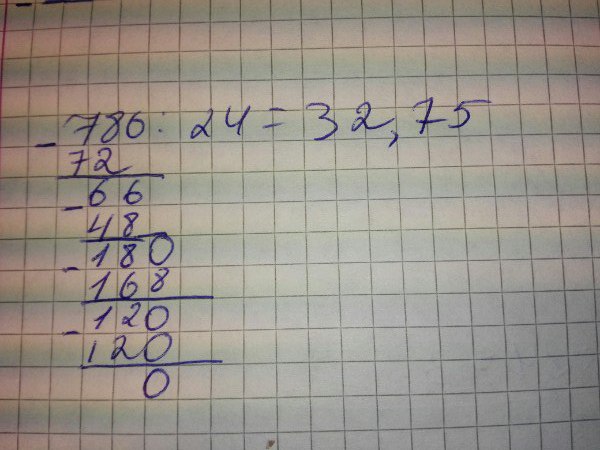 - 786 : 24 = 32,75
72
- 66
48
- 180
168
- 120
120
0